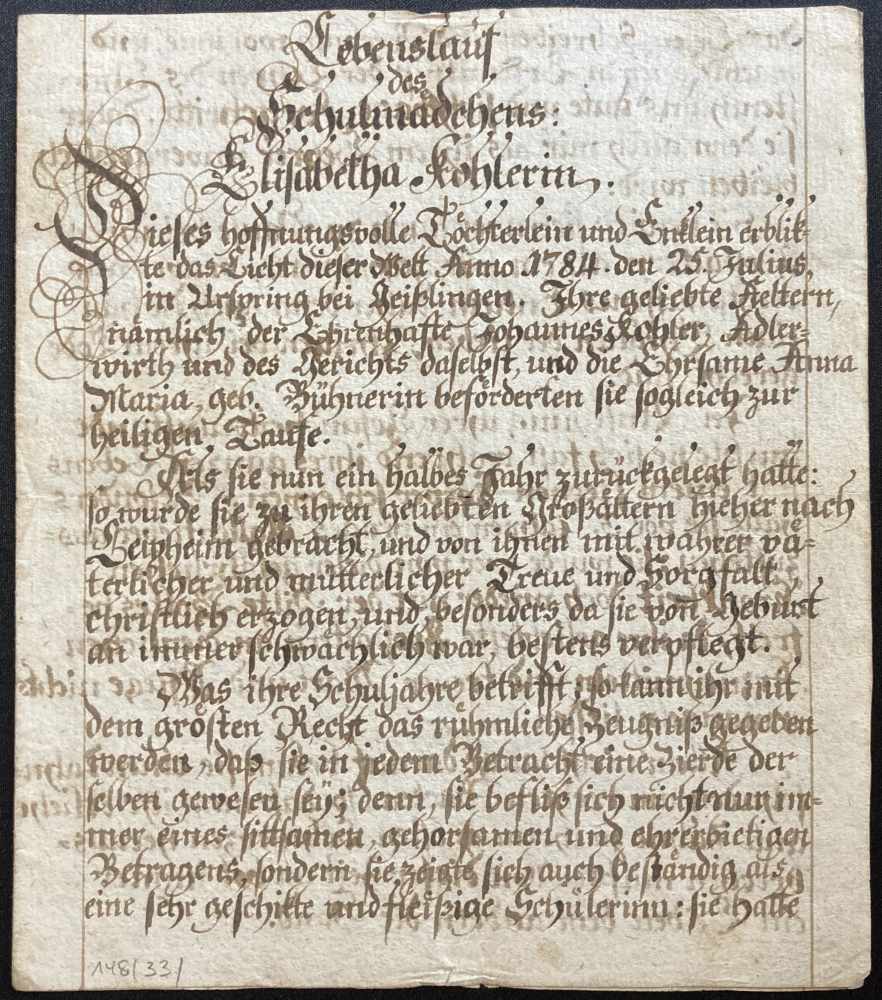 Lebenslauf
des
Schulmädchens:
Elisabetha Kohlerin.
Dieses hoffnungsvolle Töchterlein und Enklein erblik-
te das Licht dieser Welt Anno 1784. den 25. Julius,
in Urspring bei Geißlingen. Ihre geliebte Aeltern,
nämlich der Ehrenhafte Johannes Kohler, Adler-
wirth und des Gerichts daselbst, und die Ehrsame Anna
Maria, geb. Bühnerin beförderten sie sogleich zur
heiligen Taufe.
Als sie nun ein halbes Jahr zurückgelegt hatte:
so wurde sie zu ihren geliebten Großältern hieher nach
Leipheim gebracht, und von ihnen mit wahrer vä-
terlicher und mütterlicher Treue und Sorgfalt
christlich erzogen, und, besonders da sie von Geburt
an immer schwächlich war, bestens verpflegt.
Was ihre Schuljahre betrifft, so kann ihr mit
dem grösten Recht das rühmliche Zeugniß gegeben
werden, daß sie in jedem Betracht eine Zierde der
selben gewesen seÿ; denn, sie befliß sich nicht nur im-
mer eines sittsamen, gehorsamen und ehrerbietigen
Betragens, sondern sie zeigte sich auch beständig als
eine sehr geschikte und fleißige Schülerinn: sie hatte
148/33/